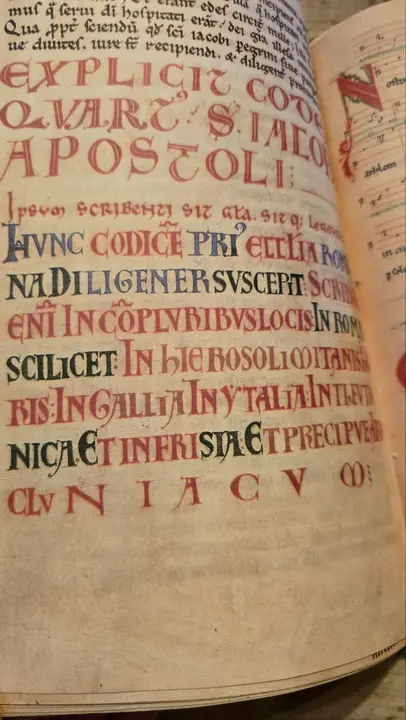 mus qͥ serui dī hospitati erāt. dei grā illesa
Qua ꝓpt͛ sciendū qd̄ sc̄i iacobi peregrini siue
ue diuites. iure sr̄t recipiendi. & diligent͛
EXPLICIT CODE
QVART᾽ S. IACO
APOSTOLI:
Ipsum scribenti sit gl̄a. sit q; legen
HVNC CODICĒ PRĪ ECCLĪA ROM
NA DILIGENER SVSCEPIT: SCRIB
ENĪ IN CŌPLVRIBVS LOCIS: IN ROM
SCILICET: IN HIEROSOLIMITANIS
RIS: IN GALLIA: IN YTALIA: IN THEVT
NICA: ET IN FRISIA: ET PRECIPVE A
CLVNIACVM: